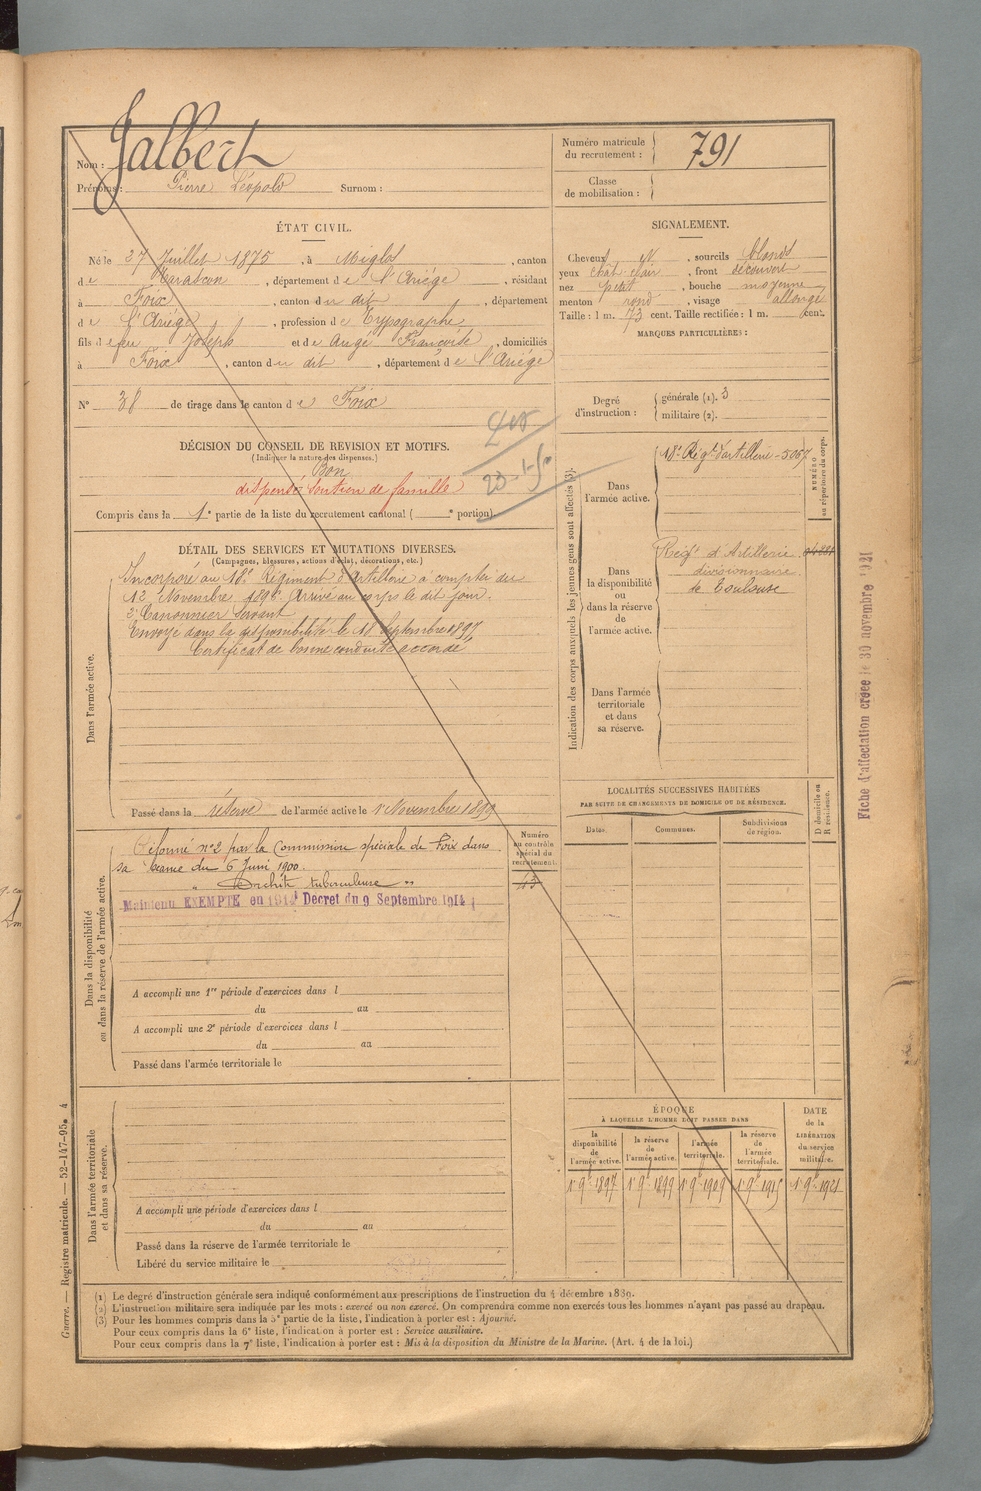 Nom : Jalbert
Prénoms : Pierre Léopold Surnom :
Numéro matricule du recrutement : 791
Classe de mobilisation :
ÉTAT CIVIL.
Né le 27 Juillet 1875, à Miglos, canton
de Tarascon, département de l'Ariège, résidant
à Foix, canton du dit, département
de l'Ariège, profession de Typographe
fils de feu Joseph et de Augé Françoise, domiciliés
à Foix, canton du dit, département de l'Ariège
N° 38 de tirage dans le canton de Foix
SIGNALEMENT.
Cheveux et, sourcils blonds
yeux chât. clair, front découvert
nez petit, bouche moyenne
menton rond, visage allongé
Taille : 1 m. 73 cent. Taille rectifiée : 1 m. cent.
MARQUES PARTICULIÈRES :
Degré d'instruction : générale (1). 3
militaire (2).
DÉCISION DU CONSEIL DE REVISION ET MOTIFS.
(Indiquer la nature des dispenses.)
Bon
dispensé soutien de famille
Compris dans la 1e partie de la liste du recrutement cantonal ( e portion).
DÉTAIL DES SERVICES ET MUTATIONS DIVERSES.
(Campagnes, blessures, actions d'éclat, décorations, etc.)
Dans l'armée active.
Incorporé au 18e Régiment d'artillerie à compter du
12 Novembre 1896. Arrivé au corps le dit jour.
2e Canonnier servant
Envoyé dans la disponibilité le 18 Septembre 1897,
Certificat de bonne conduite accordé
Passé dans la réserve de l'armée active le 1er Novembre 1899
Indication des corps auxquels les jeunes gens sont affectés (3).
NUMÉRO au répertoire du corps.
Dans l'armée active.
18e Régt d'artillerie - 5067
Dans la disponibilité ou dans la réserve de l'armée active.
Régt d'Artillerie
divisionnaire
de Toulouse
Dans l'armée territoriale et dans sa réserve.
Fiche d'affectation créée le 30 novembre 1921
LOCALITÉS SUCCESSIVES HABITÉES
PAR SUITE DE CHANGEMENTS DE DOMICILE OU DE RÉSIDENCE.
D domicile ou R résidence.
Dates. Communes. Subdivisions de région.
Dans la disponibilité ou dans la réserve de l'armée active.
Numéro au contrôle spécial du recrutement.
43
Réformé n°2 par la Commission spéciale de Foix dans
sa séance du 6 Juin 1900.
" Orchite tuberculeuse "
Maintenu EXEMPTÉ en 1914 Décret du 9 Septembre 1914
A accompli une 1re période d'exercices dans l
du au
A accompli une 2e période d'exercices dans l
du au
Passé dans l'armée territoriale le
Dans l'armée territoriale et dans sa réserve.
A accompli une période d'exercices dans l
du au
Passé dans la réserve de l'armée territoriale le
Libéré du service militaire le
ÉPOQUE
À LAQUELLE L'HOMME DOIT PASSER DANS
la disponibilité de l'armée active. la réserve de l'armée active. l'armée territoriale. la réserve de l'armée territoriale.
DATE de la LIBÉRATION du service militaire.
1er 9bre 1897 1er 9bre 1899 1er 9bre 1909 1er 9bre 1915 1er 9bre 1921
(1) Le degré d'instruction générale sera indiqué conformément aux prescriptions de l'instruction du 4 décembre 1889.
(2) L'instruction militaire sera indiquée par les mots : exercé ou non exercé. On comprendra comme non exercés tous les hommes n'ayant pas passé au drapeau.
(3) Pour les hommes compris dans la 5e partie de la liste, l'indication à porter est : Ajourné.
Pour ceux compris dans la 6e liste, l'indication à porter est : Service auxiliaire.
Pour ceux compris dans la 7e liste, l'indication à porter est : Mis à la disposition du Ministre de la Marine. (Art. 4 de la loi.)
Guerre. — Registre matricule. — 52-147-95. 4